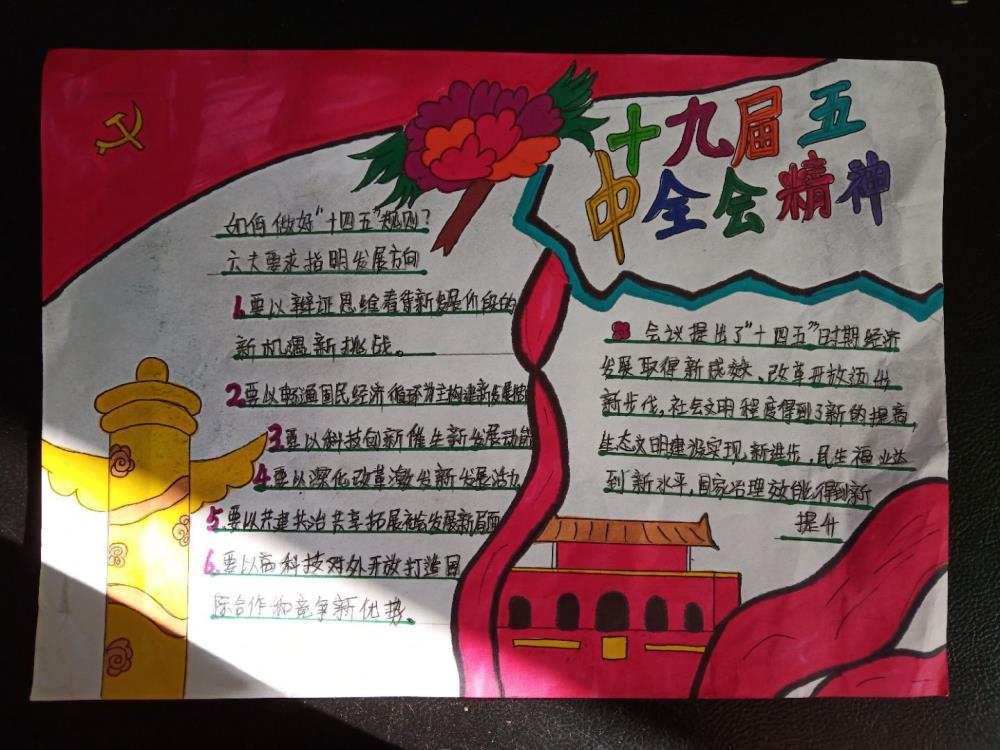 十九届五
中全会精神
如何做好"十四五"规划?
六大要求指明发展方向
1.要以辩证思维看待新发展阶段的
新机遇新挑战。
2.要以畅通国民经济循环为主构建新发展格
3.要以科技创新催生新发展动能
4.要以深化改革激发新发展活力
5.要以共建共治共享拓展社会发展新局面
6.要以高科技对外开放打造国
际合作和竞争新优势。
会议提出了"十四五"时期经济
发展取得新成效、改革开放迈出
新步伐,社会文明程度得到了新的提高,
生态文明建设实现新进步,民生福业达
到新水平,国家治理效能得到新
提升